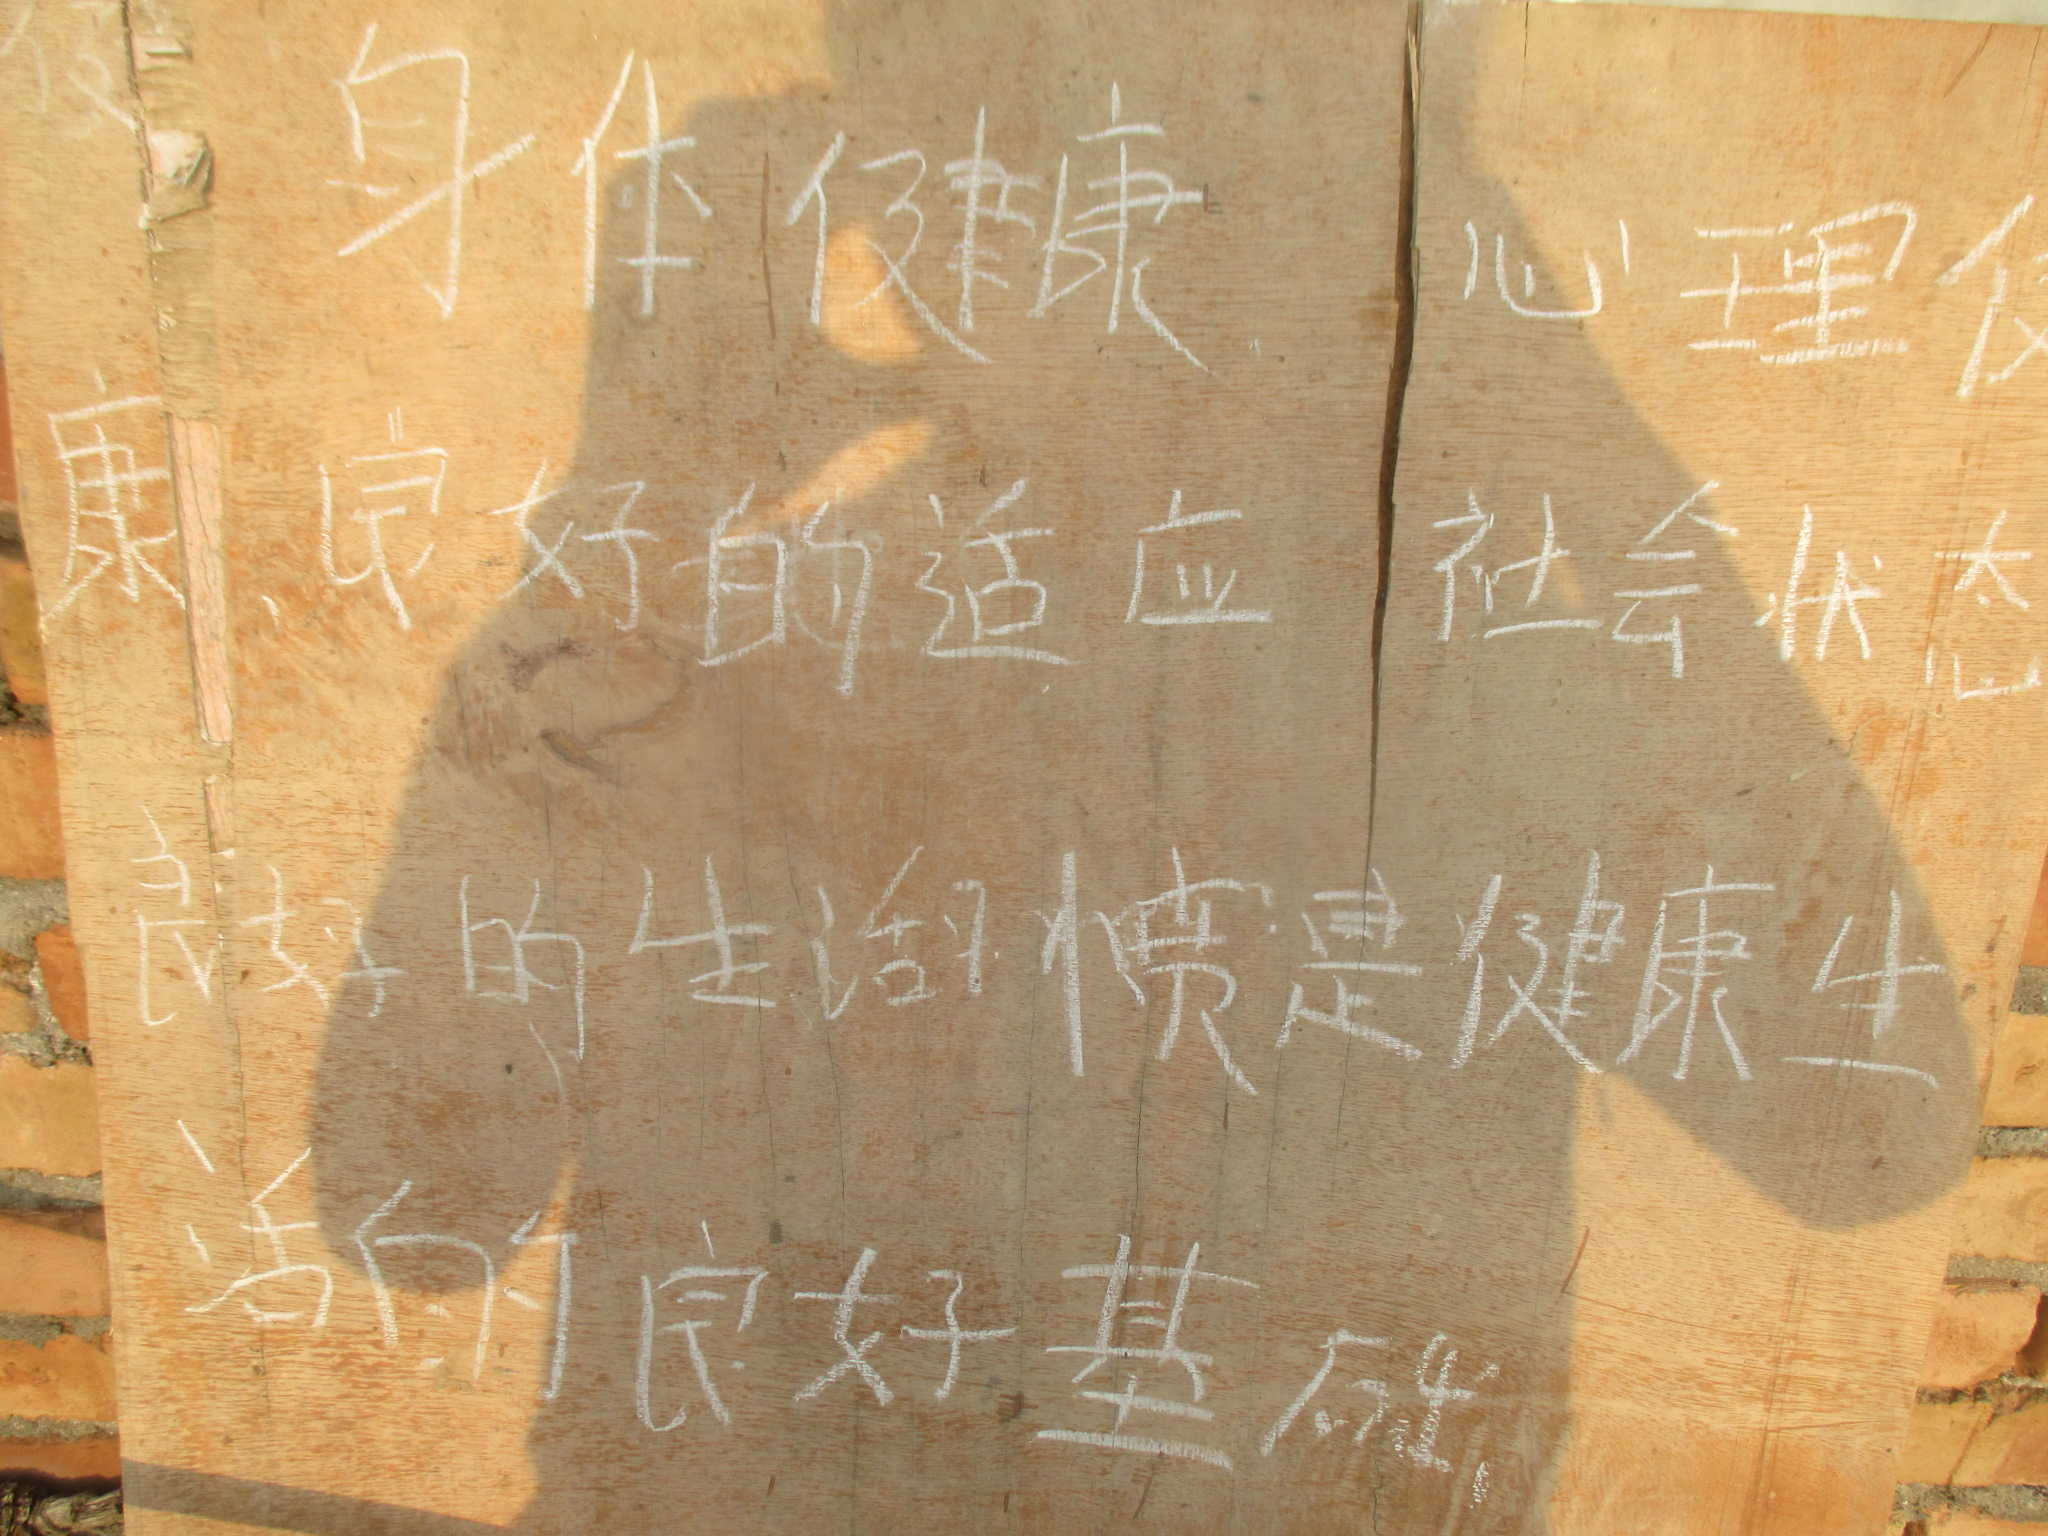 身体健康、心理健
康、良好的适应社会状态
良好的生活习惯是健康生
活的良好基础